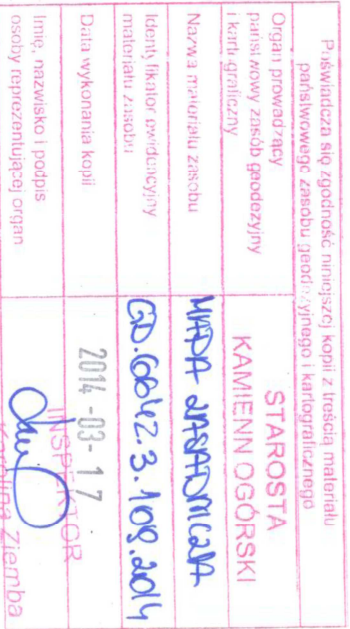 Poświadcza się zgodność niniejszej kopii z treścią materiału
państwowego zasobu geodezyjnego i kartograficznego
Organ prowadzący
państwowy zasób geodezyjny
i kartograficzny
STAROSTA
KAMIENNOGÓRSKI
Nazwa materiału zasobu
MAPA ZASADNICZA
Identyfikator ewidencyjny
materiału zasobu
GD.6642.3.109.2014
Data wykonania kopii
2014 -03- 17
Imię, nazwisko i podpis
osoby reprezentującej organ
INSPEKTOR
Karolina Ziemba